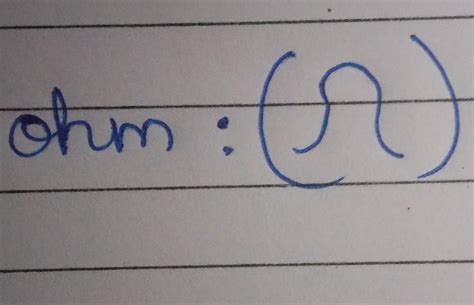 ohm : (Ω)